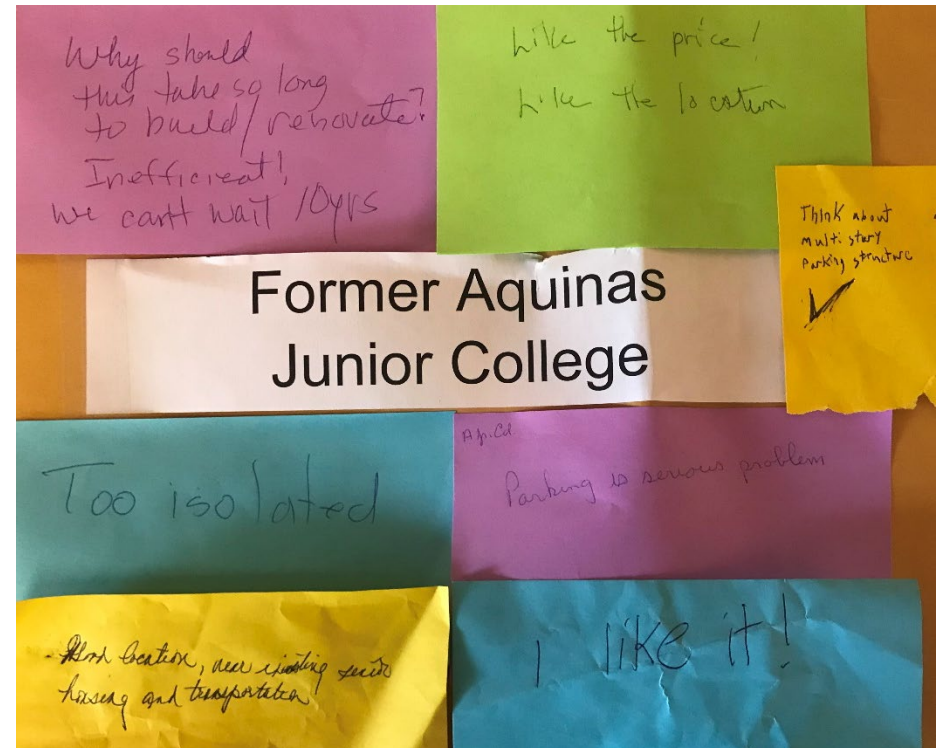 Why should
this take so long
to build/renovate?
Inefficient!
we can't wait 10yrs
Like the price!
Like the location
Think about
multi story
parking structure
Former Aquinas
Junior College
Too isolated
Parking is serious problem
location, near existing senior
housing and transportation
I like it!